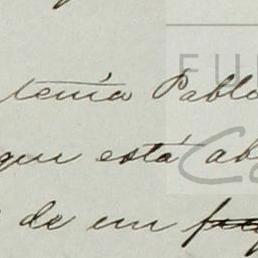 tenía Pablo
que está ab
de un